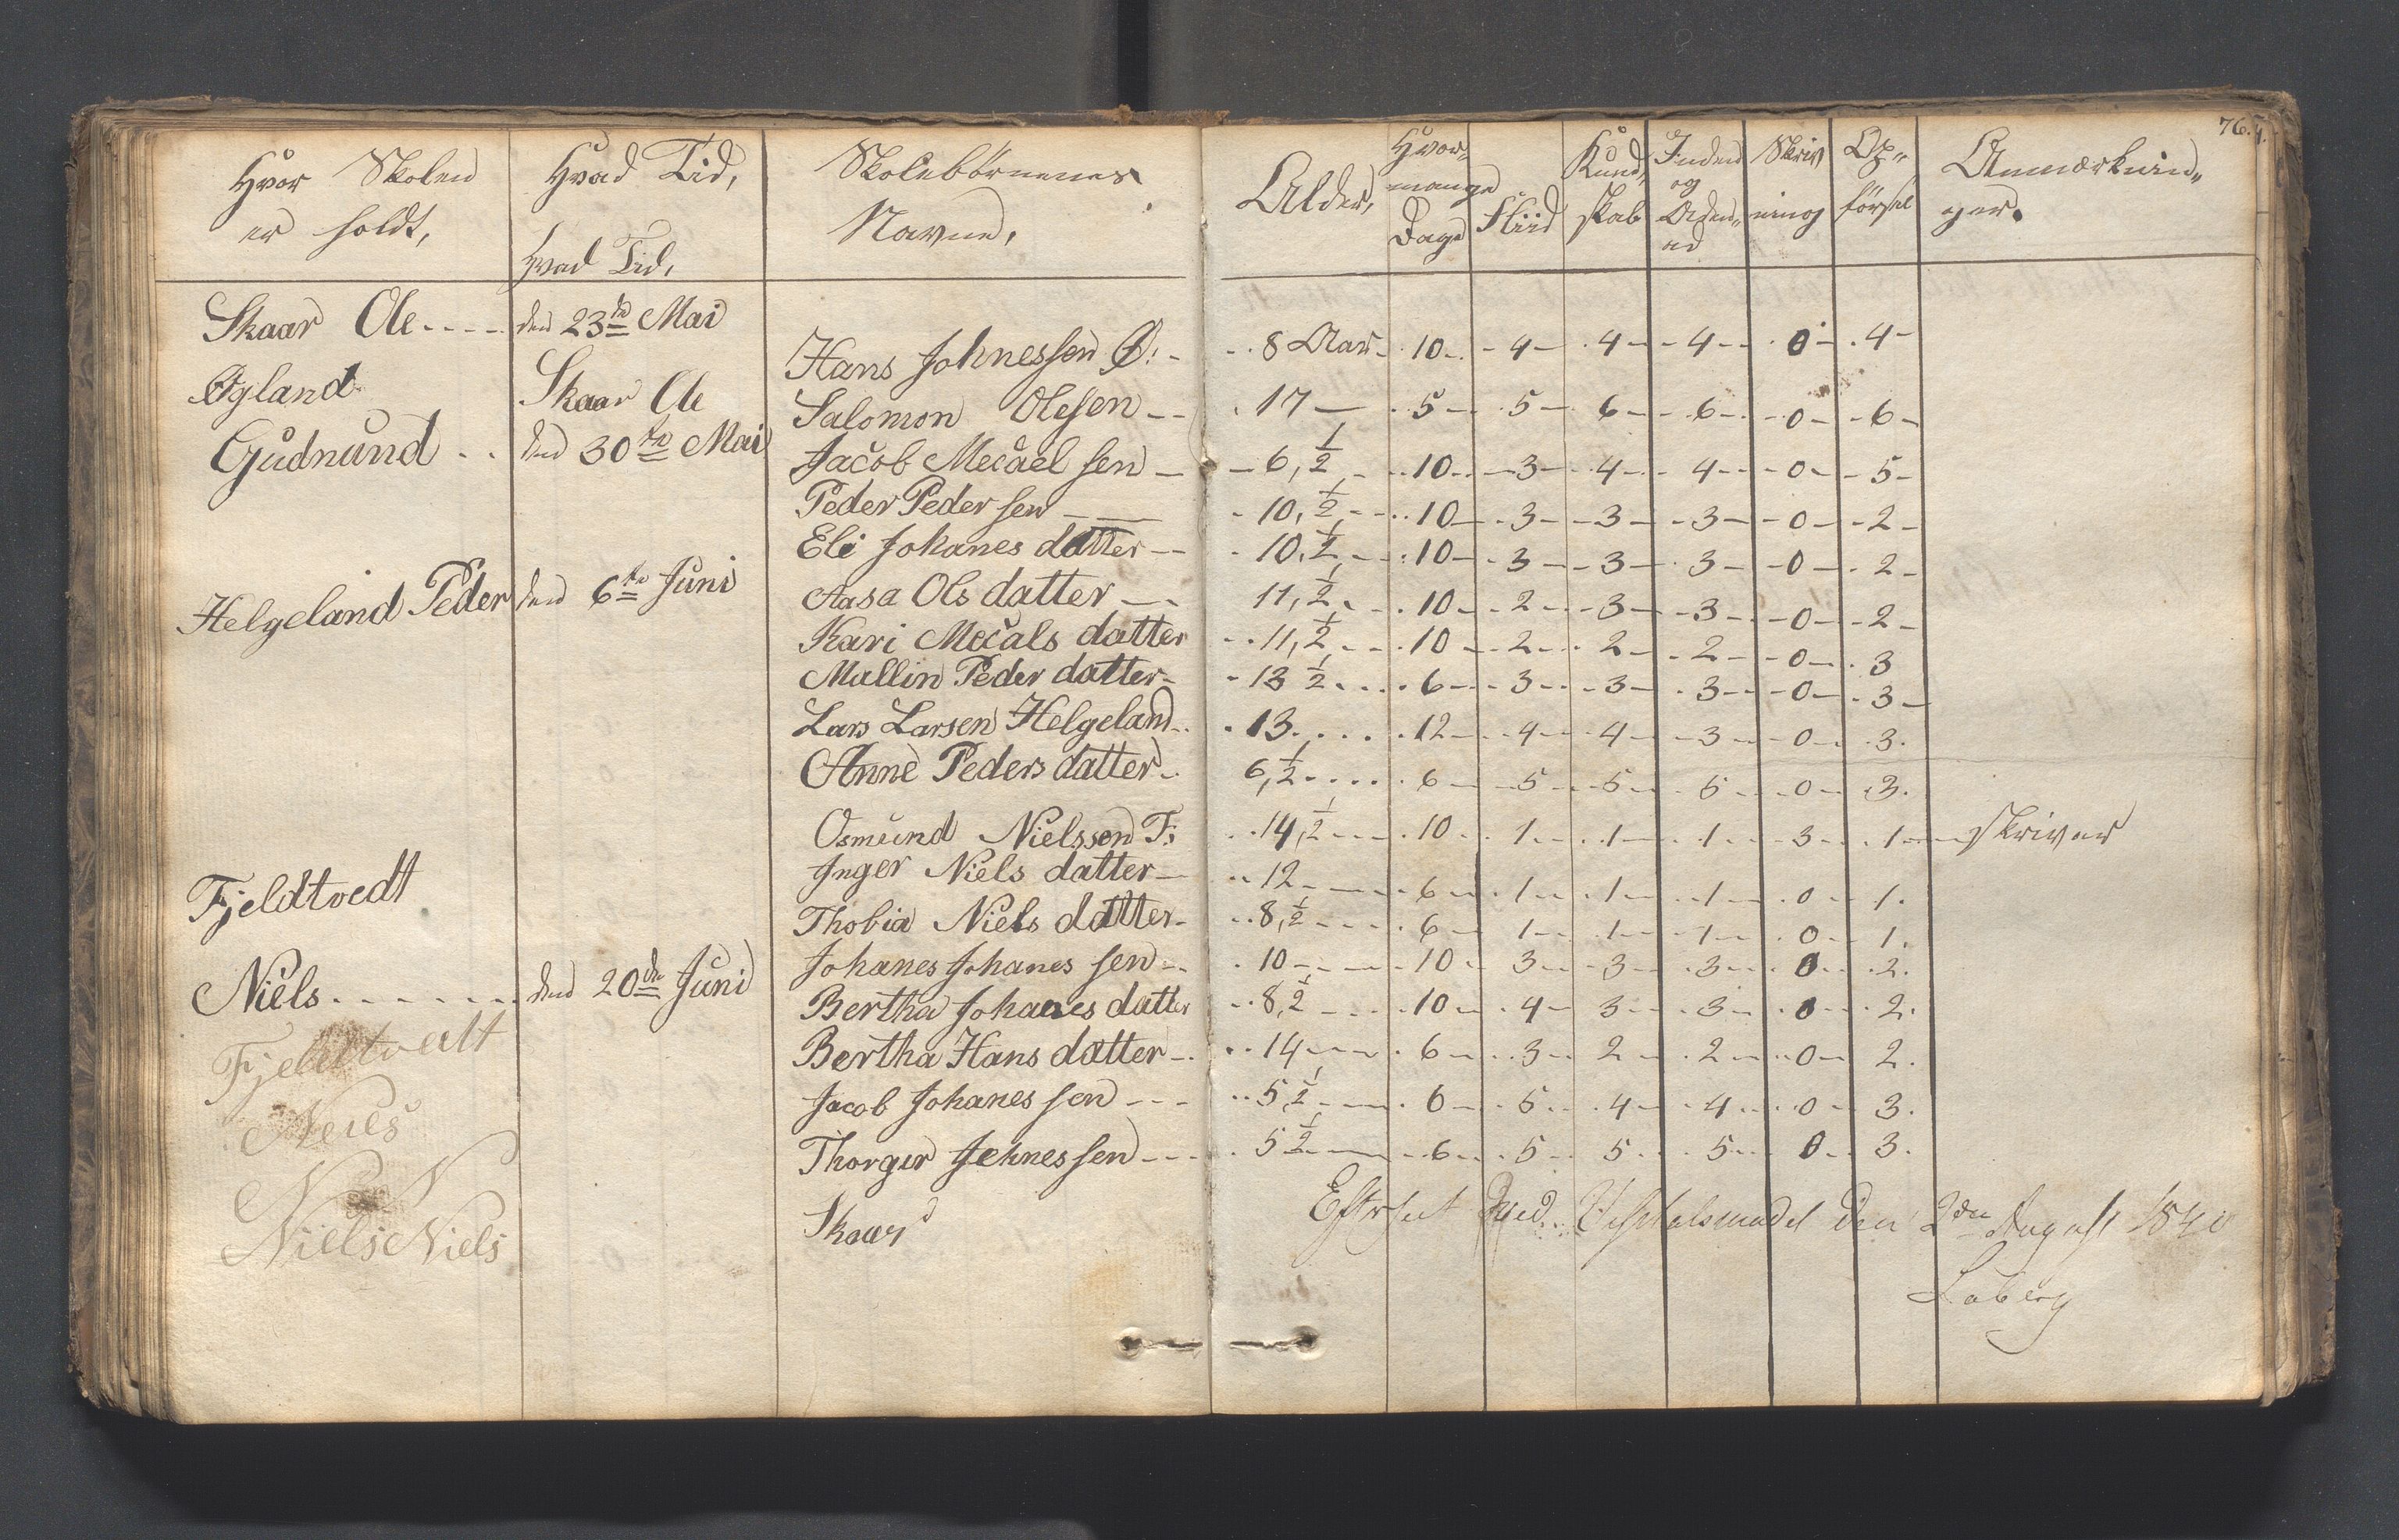 76.
Hvor Skolen
er holdt,
Hvad Tid,
Hvad Tid,
Skolebørnenes
Navne,
Alder,
Hvor-
mange
Dage
Fliid
Kund-
skab
Inden
og
Uden-
ad
Skriv
ning
Op-
førsel
Anmærknin-
ger.
Skaar Ole den 23de Mai
Hans Johnessen Ø: 8 Aar 10 4 4 4 0 4
Øgland Skaar Ole
Salomon Olesen 17 5 5 6 6 0 6
Gudnund den 30te Mai
Jacob Mecael sen 6, 1/2 10 3 4 4 0 5
Peder Peder sen 10, 1/2 10 3 3 3 0 2
Eli Johanes datter 10, 1/2 10 3 3 3 0 2
Helgeland Peder den 6te Juni
Aasa Ols datter 11, 1/2 10 2 3 3 0 2
Kari Mecals datter 11, 1/2 10 2 2 2 0 3
Mallin Peder datter 13 1/2 6 3 3 3 0 3
Lars Larsen Helgeland 13 12 4 4 3 0 3
Anne Peders datter 6, 1/2 6 5 5 5 0 3
Osmund Nielsson F: 14, 1/2 10 1 1 1 3 1 skriver
Inger Niels datter 12 6 1 1 1 0 1
Fjeldtvedt
Thobia Niels datter 8, 1/2 6 1 1 1 0 1
Johanes Johanes sen 10 10 3 3 3 0 2
Niels den 20de Juni
Bertha Johanes datter 8, 1/2 10 4 3 3 0 2
Fjeldtvedt
Bertha Hans datter 14 6 3 2 2 0 2
Niels
Jacob Johanes sen 5, 1/2 6 5 4 4 0 3
Thorger Johnes sen 5 1/2 6 5 5 5 0 3
N N
Skaar
Niels Niels
Efterseet ved den 2den August 1840
Laberg